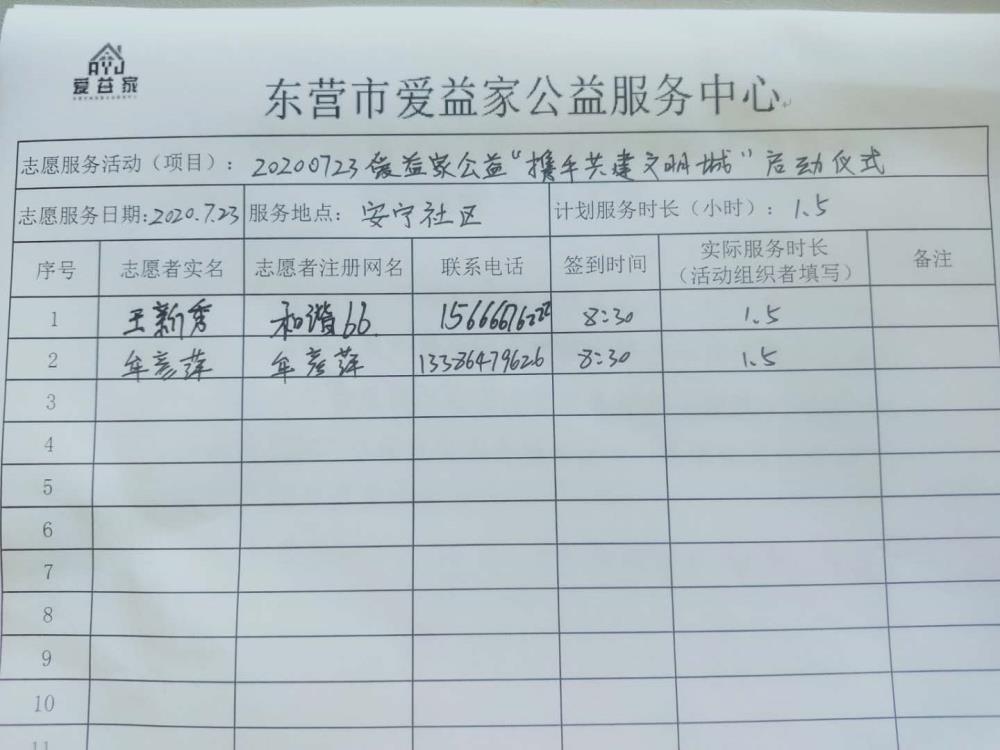 AYJ
爱益家
东营市爱益家公益服务中心
志愿服务活动（项目）： 20200723爱益家公益“携手共建文明城”启动仪式
志愿服务日期:2020.7.23 服务地点： 安宁社区 计划服务时长（小时）： 1.5
序号 志愿者实名 志愿者注册网名 联系电话 签到时间 实际服务时长 备注
（活动组织者填写）
1 王新秀 和谐66 8:30 1.5
2 牟彦萍 牟彦萍 13386479626 8:30 1.5
3
4
5
6
7
8
9
10
11